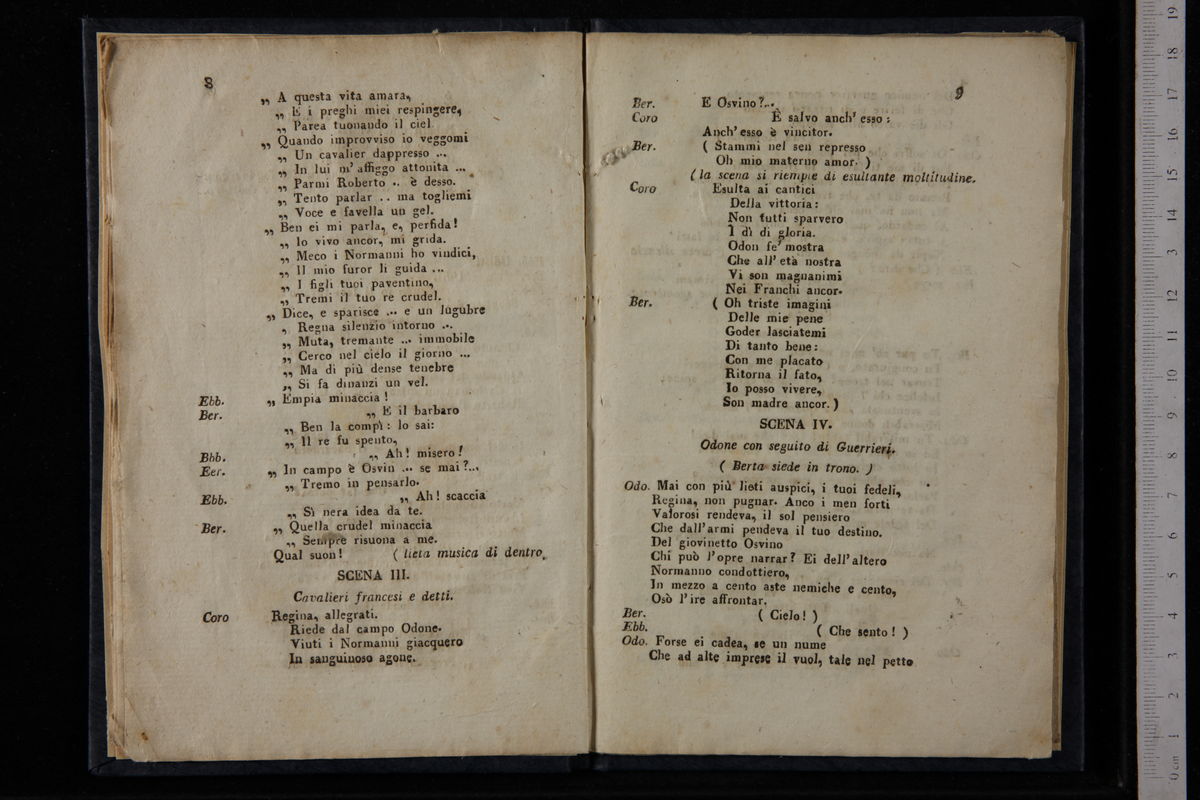 8
„ A questa vita amara,
„ E i preghi miei respingere,
„ Parea tuonando il ciel
„ Quando improvviso io veggomi
„ Un cavalier dappresso ...
„ In lui m' affiggo attonita ...
„ Parmi Roberto .. è desso.
„ Tento parlar .. ma togliemi
„ Voce e favella un gel.
„ Ben ei mi parla, e, perfida!
„ Io vivo ancor, mi grida.
„ Meco i Normanni ho vindici,
„ Il mio furor li guida ...
„ I figli tuoi paventino,
„ Tremi il tuo re crudel.
„ Dice, e sparisce ... e un lugubre
„ Regna silenzio intorno ...
„ Muta, tremante ... immobile
„ Cerco nel cielo il giorno ...
„ Ma di più dense tenebre
„ Si fa dinanzi un vel.
Ebb. „ Empia minaccia!
Ber. „ E il barbaro
„ Ben la compì: lo sai:
„ Il re fu spento,
Bbb. „ Ah! misero!
Eer. „ In campo è Osvin ... se mai?...
„ Tremo in pensarlo.
Ebb. „ Ah! scaccia
„ Sì nera idea da te.
Ber. „ Quella crudel minaccia
„ Sempre risuona a me.
Qual suon! ( lieta musica di dentro.
SCENA III.
Cavalieri francesi e detti.
Coro Regina, allegrati.
Riede dal campo Odone.
Viuti i Normanni giacquero
In sanguinoso agone.
9
Ber. E Osvino?...
Coro E salvo anch' esso:
Anch' esso è vincitor.
Ber. ( Stammi nel sen represso
Oh mio materno amor. )
(la scena si riempie di esultante moltitudine.
Coro Esulta ai cantici
Della vittoria:
Non tutti sparvero
I dì di gloria.
Odon fe' mostra
Che all' età nostra
Vi son magnanimi
Nei Franchi ancor.
Ber. ( Oh triste imagini
Delle mie pene
Goder lasciatemi
Di tanto bene:
Con me placato
Ritorna il fato,
Io posso vivere,
Son madre ancor. )
SCENA IV.
Odone con seguito di Guerrieri.
( Berta siede in trono. )
Odo. Mai con più lieti auspici, i tuoi fedeli,
Regina, non pugnar. Anco i men forti
Valorosi rendeva, il sol pensiero
Che dall' armi pendeva il tuo destino.
Del giovinetto Osvino
Chi può l' opre narrar? Ei dell' altero
Normanno condottiero,
In mezzo a cento aste nemiche e cento,
Osò l' ire affrontar.
Ber. ( Cielo! )
Ebb. ( Che sento! )
Odo. Forse ei cadea, se un nume
Che ad alte imprese il vuol, tale nel petto